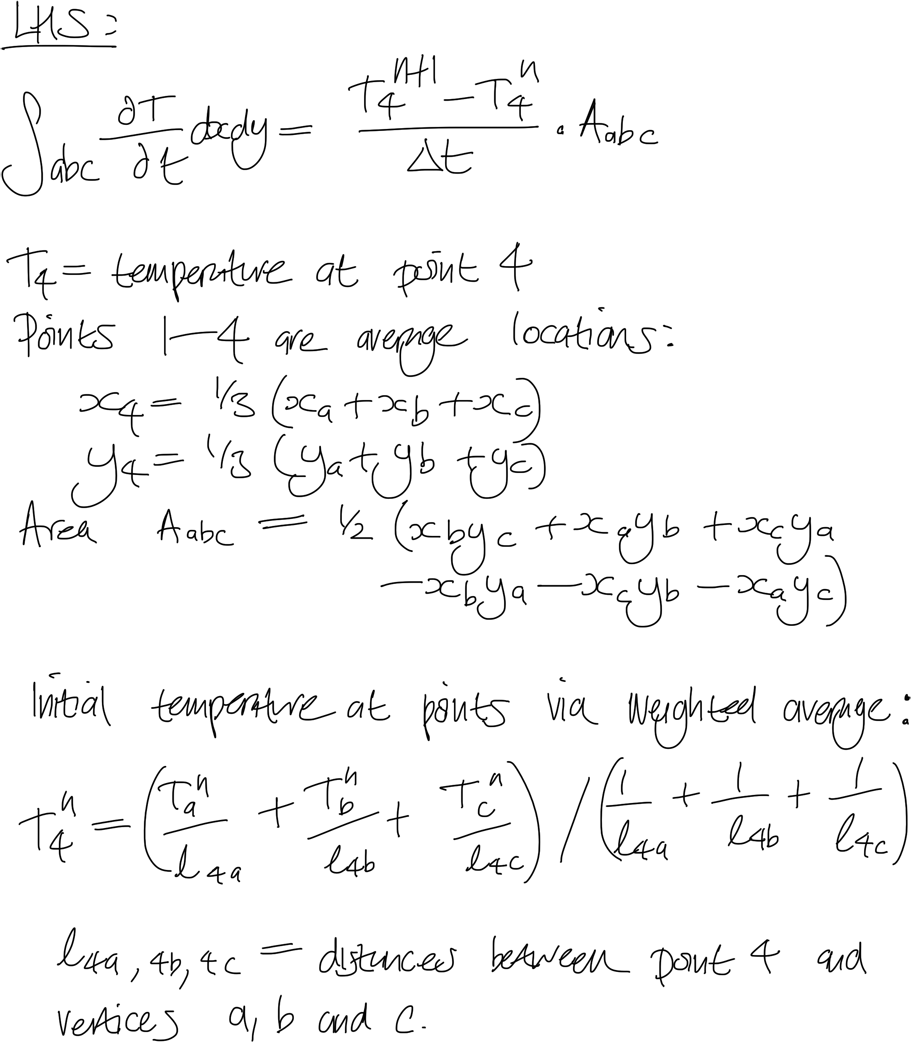 LHS:
∫_abc ∂T/∂t dxdy = (T₄ⁿ⁺¹ − T₄ⁿ)/Δt · A_abc
T₄ = temperature at point 4
Points 1–4 are average locations:
x₄ = 1/3 (x_a + x_b + x_c)
y₄ = 1/3 (y_a + y_b + y_c)
Area A_abc = 1/2 (x_b y_c + x_a y_b + x_c y_a
− x_b y_a − x_c y_b − x_a y_c)
Initial temperature at points via weighted average:
T₄ⁿ = (T_aⁿ/l_4a + T_bⁿ/l_4b + T_cⁿ/l_4c) / (1/l_4a + 1/l_4b + 1/l_4c)
l_4a, 4b, 4c = distances between point 4 and
vertices a, b and c.